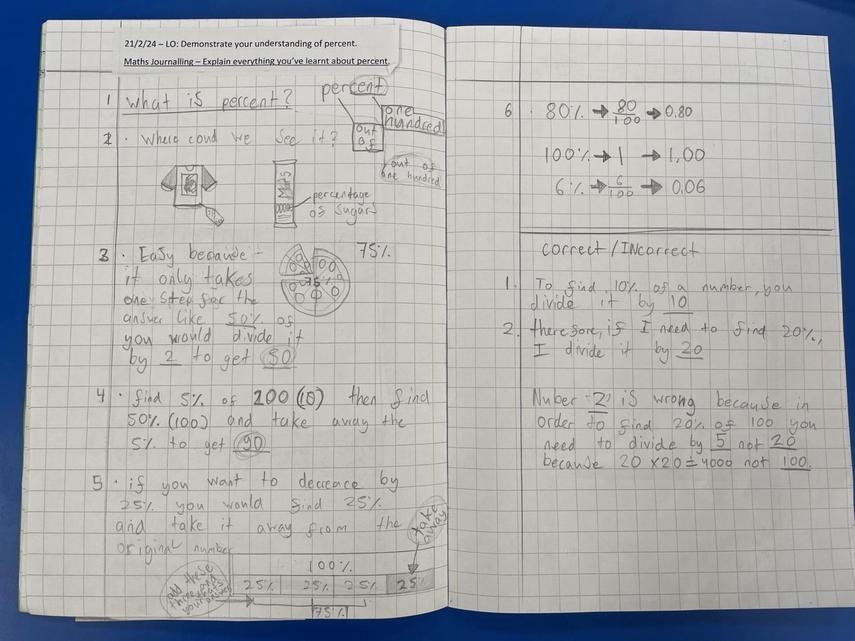 21/2/24 – LO: Demonstrate your understanding of percent.
Maths Journalling – Explain everything you've learnt about percent.
1 What is percent?
percent
out of
one hundred
2 · Where coud we see it?
out of
one hundred
MARS
percentage
of sugars
3 · Easy because -
it only takes
one step for the
answer like 50% of
you would divide it
by 2 to get 50
75%
75%
4 · find 5% of 200 (10) then find
50% (100) and take away the
5% to get 90
5 · if you want to decreace by
25% you would find 25%
and take it away from the
original number
take away
100%
25% 25% 25% 25%
75%
add these
three and
your answer
6 · 80% → 80/100 → 0.80
100% → 1 → 1,00
6% → 6/100 → 0.06
correct/Incorrect
1. To find 10% of a number, you
divide it by 10
2. therefore, if I need to find 20%,
I divide it by 20
Nuber 2 is wrong because in
order to find 20% of 100 you
need to divide by 5 not 20
because 20 x20 = 4000 not 100.